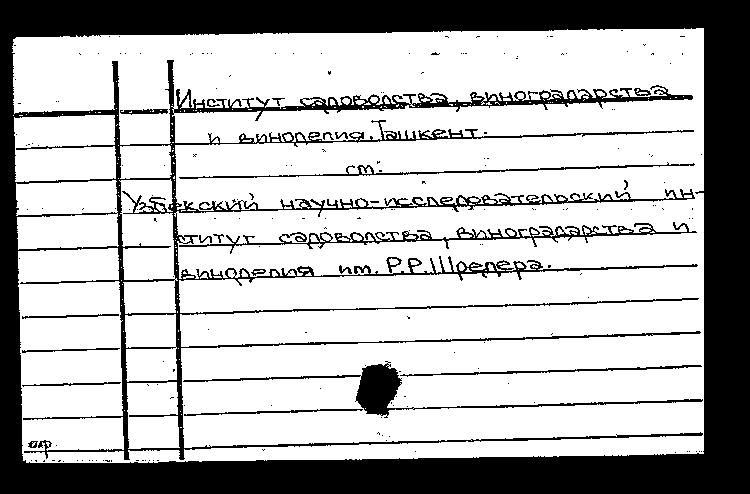 Институт садоводства, виноградарства
и виноделия. Ташкент.
см:
Узбекский научно-исследовательский ин-
ститут садоводства, виноградарства и
виноделия им. Р.Р.Шредера.